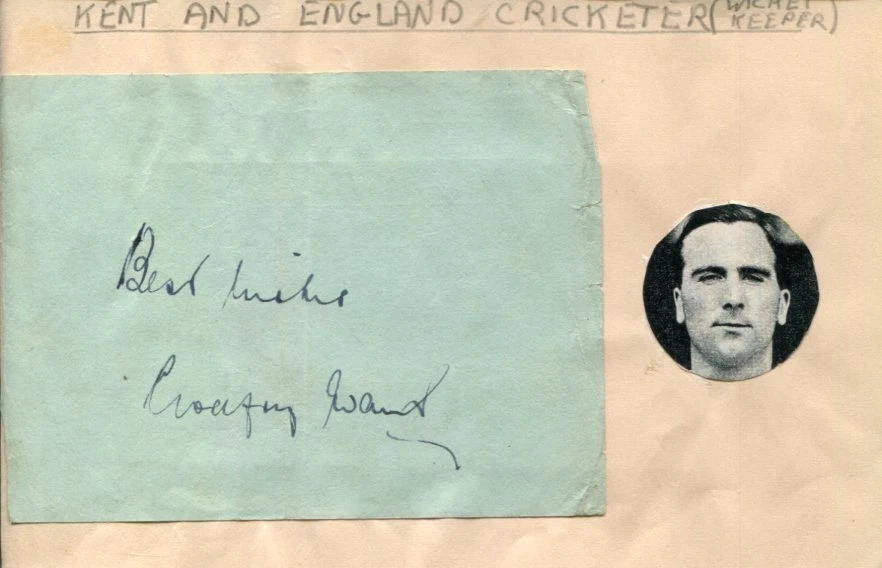 KENT AND ENGLAND CRICKETER (WICKET
KEEPER)
Best wishes
Godfrey Evans